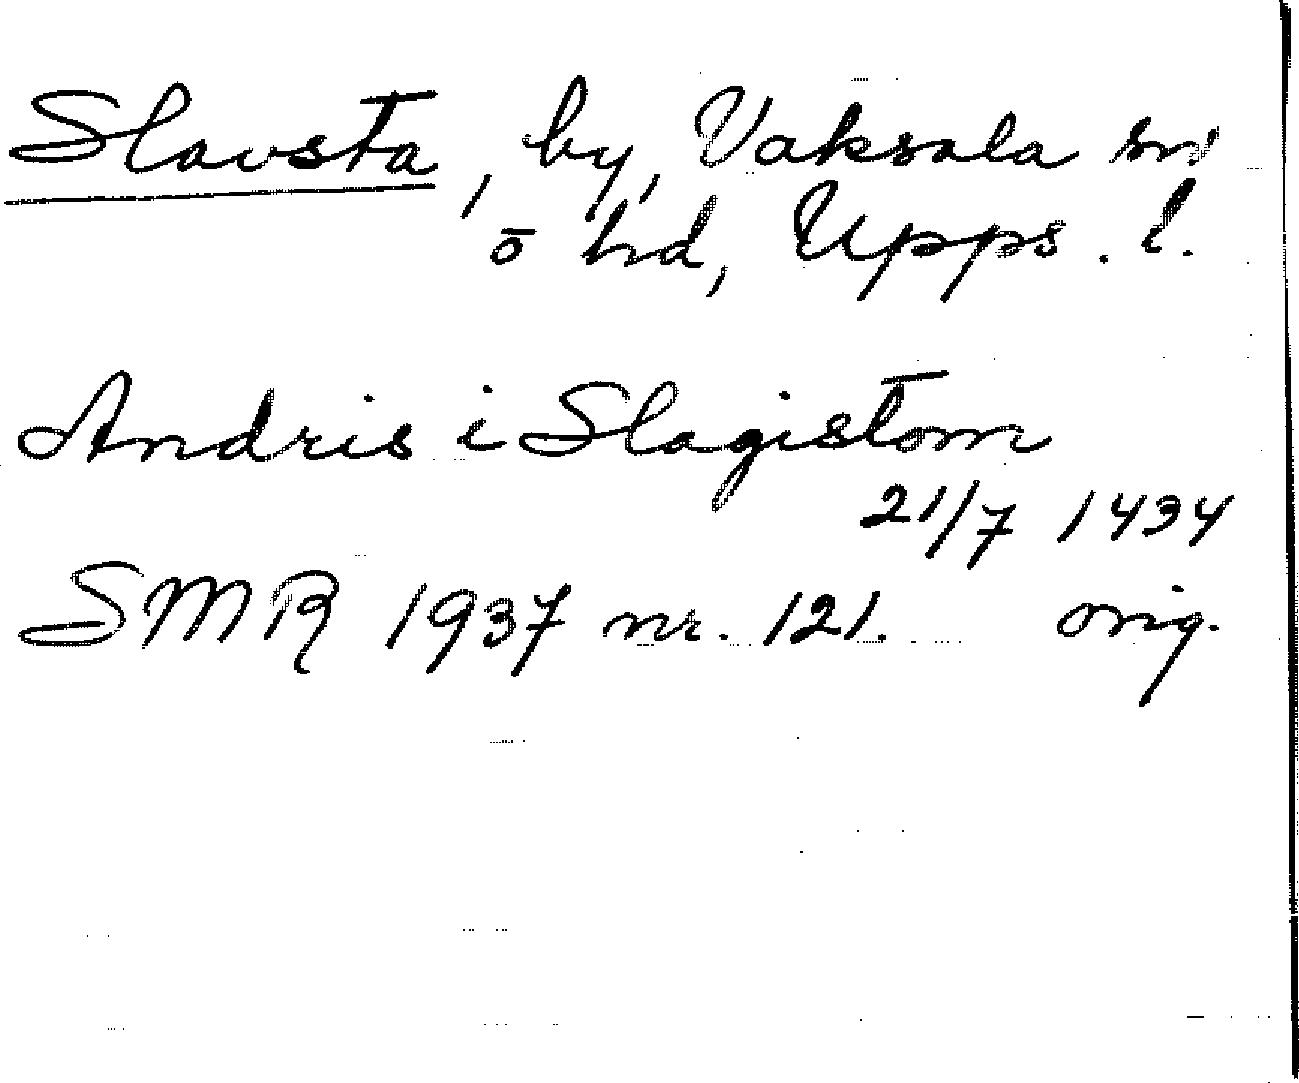 Slavsta, by, Vaksala sn
o hd, Upps. l.
Andris i Slagistom
21/7 1434
SMR 1937 nr. 121. orig.